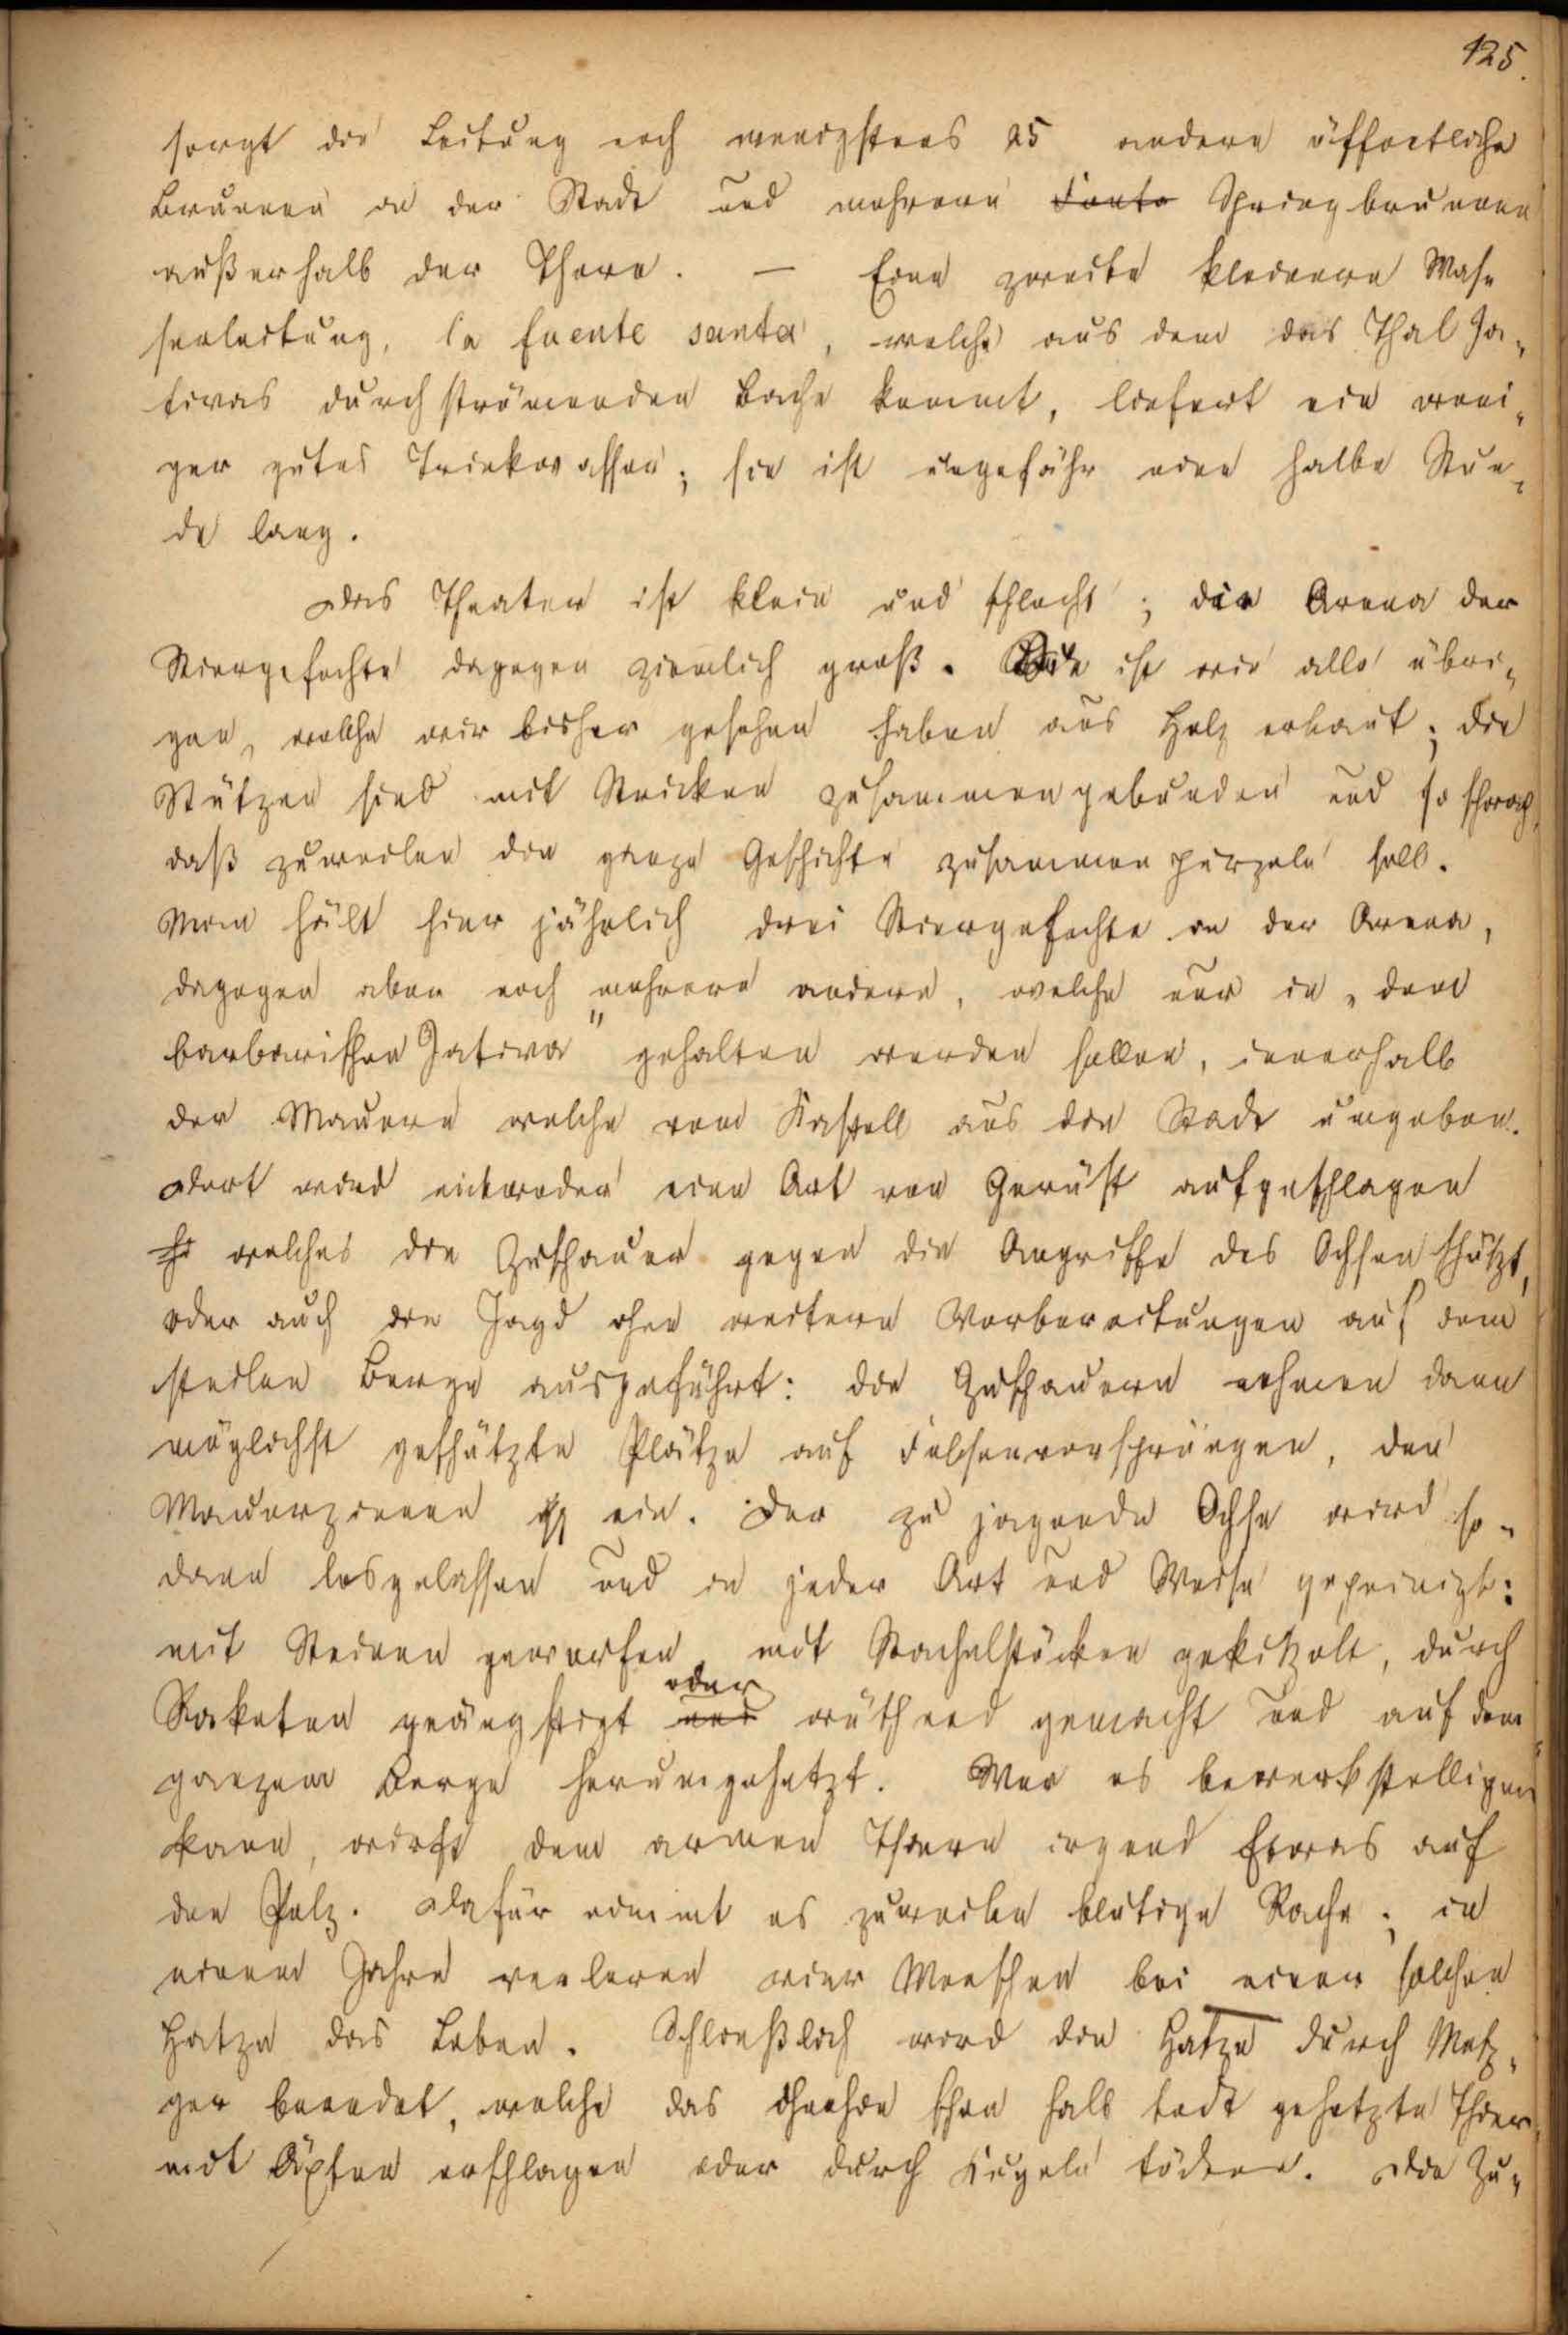 125.
sorgt die Leitung noch wenigstens 25 andere öffentliche
Brunnen in der Stadt und mehrere Fonta Springbrunnen
außerhalb der Thore. — Eine zweite kleinere Was-
serleitung, la fuente santa, welche aus dem das Thal Ja-
tivas durchströmenden Bache kommt, liefert ein weni-
ger gutes Trinkwasser; sie ist ungefähr eine halbe Stun-
de lang.
Das Theater ist klein und schlecht; die Arena der
Stiergefechte dagegen ziemlich groß. ist wie alle übri-
gen, welche wir bisher gesehen haben aus Holz erbaut; die
Stützen sind mit Stricken zusammengebunden und so schwach
daß zuweilen die ganze Geschichte zusammen purzeln soll.
Man hält hier jährlich drei Stiergefechte in der Arena,
dagegen aber noch mehrere andere, welche nur in „dem
barbarischen Jativa" gehalten werden sollen, innerhalb
der Mauern welche vom Kastell aus die Stadt umgeben.
Dort wird entweder eine Art von Gerüst aufgeschlagen
welches die Zuschauer gegen die Angriffe des Ochsen schützt,
oder auch die Jagd ohne weitere Vorbereitungen auf dem
steilen Berge ausgeführt: die Zuschauern nehmen dann
möglichst geschützte Plätze auf Felsenvorsprüngen, den
Mauerzinnen ein. Der zu jagende Ochse wird so-
dann losgelassen und in jeder Art und Weise gepeinigt:
mit Steinen geworfen, mit Stachelstöcken gekitzelt, durch
oder
Raketen geängstigt und wüthend gemacht und auf dem
ganzem Berge herumgehetzt. Wer es bewerkstelligen
kann, wirft dem armen Thiere irgend Etwas auf
den Pelz. Dafür nimmt es zuweilen blutige Rache; in
einem Jahre verloren vier Menschen bei einer solchen
Hatze das Leben. Schließlich wird die Hatze durch Metz-
ger beendet, welche das ohnehin schon halb todt gehetzte Thier
mit Äxten erschlagen oder durch Kugeln tödten. Die Zu-